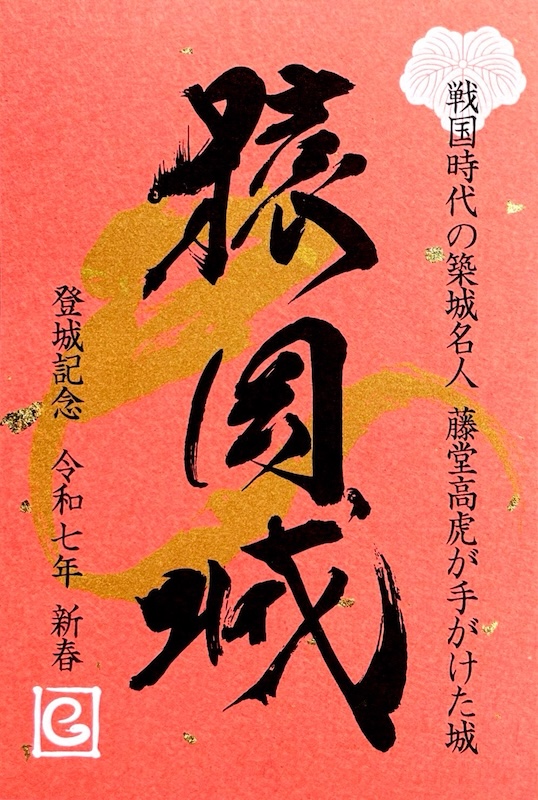 戦国時代の築城名人　藤堂高虎が手がけた城
猿岡城
登城記念　令和七年　新春
巳